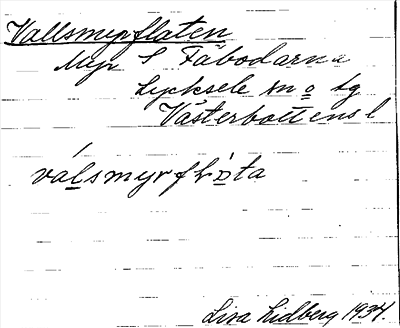 Vallsmyrflaten
Myr S Fäbodarna
Lycksele sn o tg
Västerbottens l
válsmyrflòta
Lisa Lidberg 1934